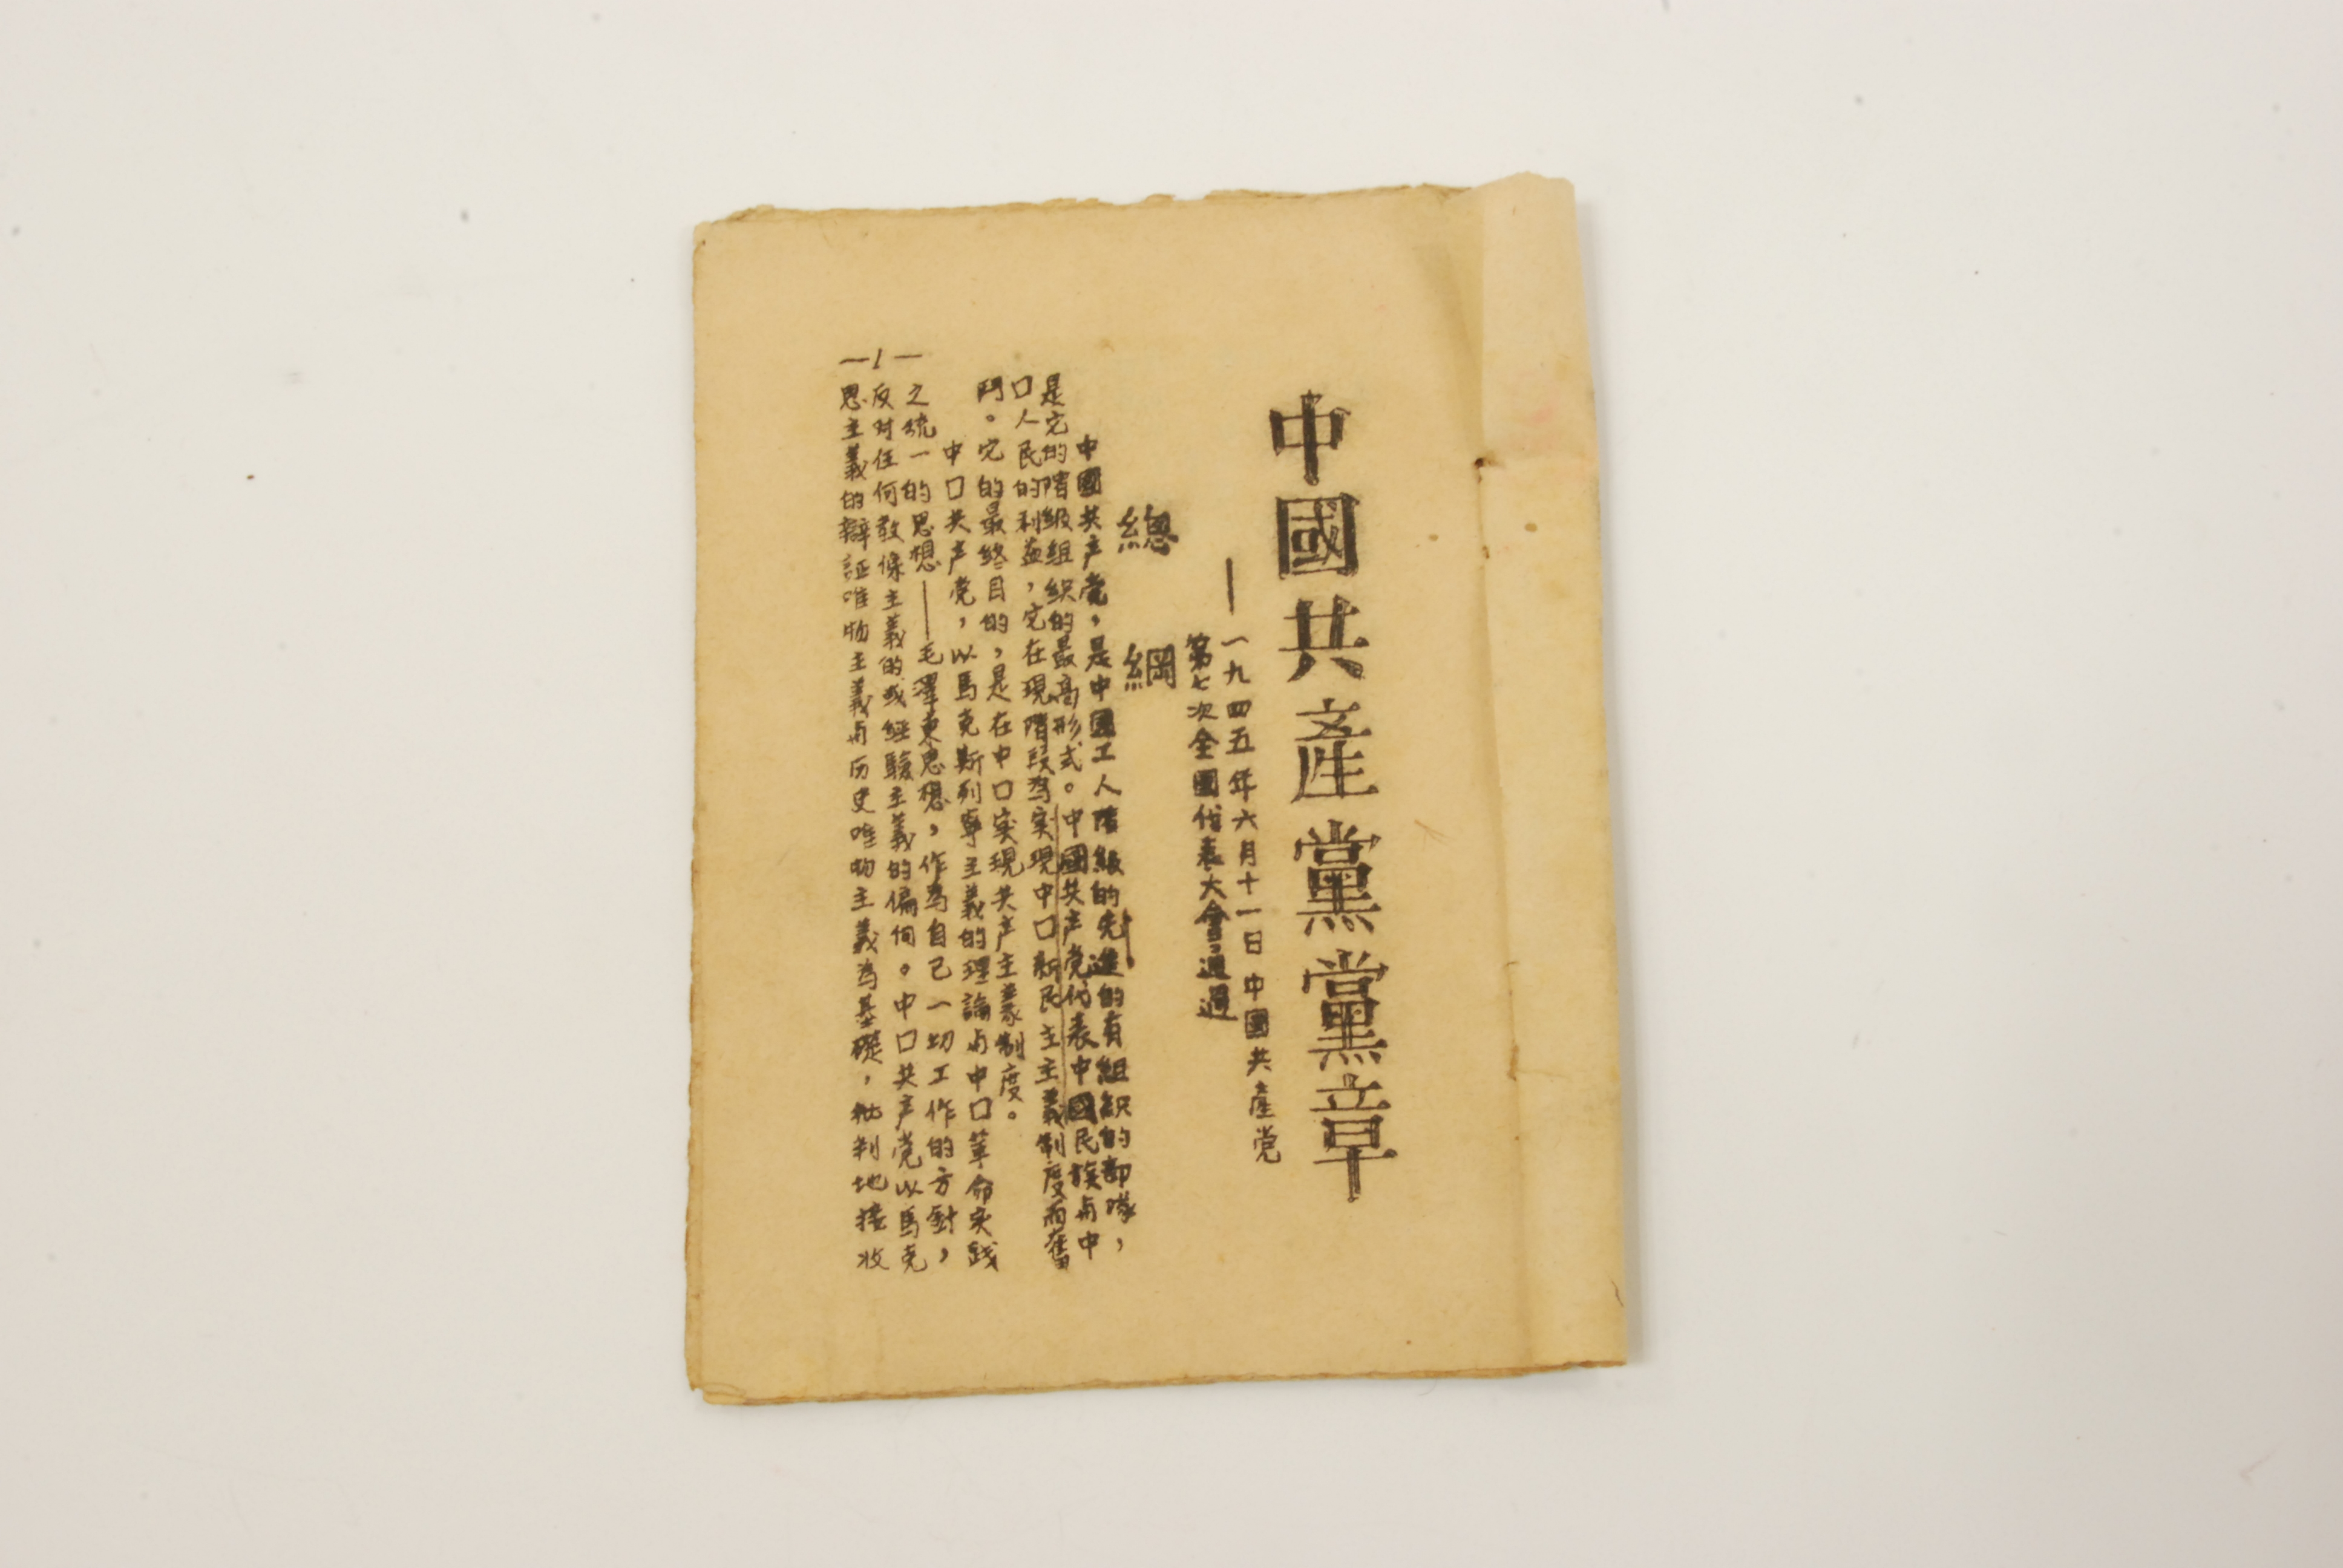 中國共產黨黨章
——一九四五年六月十一日中國共產党
第七次全國代表大會通過
總綱
中國共产党，是中國工人階級的先進的有組织的部隊，
是它的階級組织的最高形式。中國共产党代表中國民族与中
口人民的利益，它在現階段為实現中口新民主主義制度而奮
鬥。它的最終目的，是在中口实現共产主義制度。
中口共产党，以馬克斯列寧主義的理論与中口革命实践
之統一的思想——毛澤東思想，作為自己一切工作的方針，
反对任何教條主義的或經驗主義的偏向。中口共产党以馬克
思主義的辯証唯物主義与历史唯物主義為基礎，批判地接收
—1—